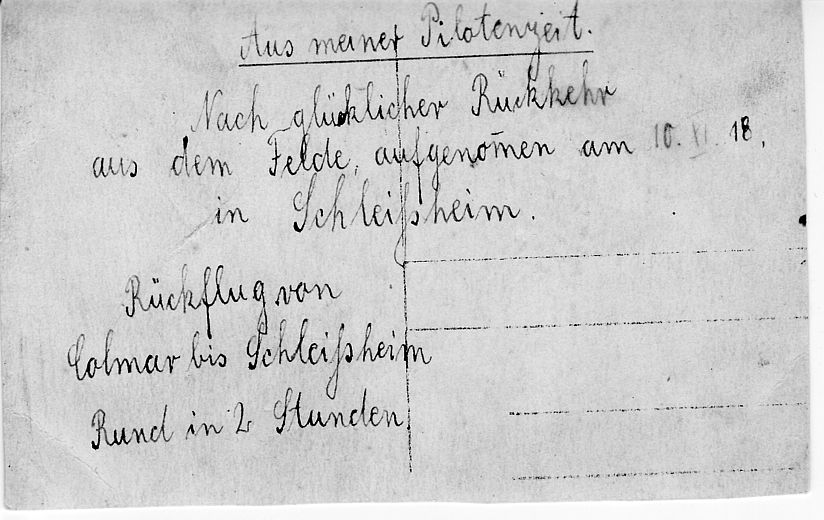 Aus meiner Pilotenzeit.
Nach glücklicher Rückkehr
aus dem Felde, aufgenom̅en am 10. XI. 18,
in Schleißheim.
Rückflug von
Colmar bis Schleißheim
Rund in 2 Stunden.